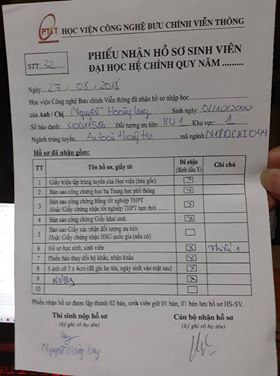 PTIT
HỌC VIỆN CÔNG NGHỆ BƯU CHÍNH VIỄN THÔNG
PHIẾU NHẬN HỒ SƠ SINH VIÊN
STT: 32
ĐẠI HỌC HỆ CHÍNH QUY NĂM .........
Ngày 27/08/2018
Học viện Công nghệ Bưu chính Viễn thông đã nhận hồ sơ nhập học
của Anh / Chị Nguyễn Hoàng Long Sinh ngày
Số báo danh Đối tượng ưu tiên KV1 Khu vực 1
Ngành trúng tuyển An toàn thông tin mã ngành
Hồ sơ đã nhận gồm:
TT Tên hồ sơ, giấy tờ Đã nhận (đánh dấu X) Ghi chú
1 Giấy triệu tập trúng tuyển của Học viện (bản gốc) X
2 Bản sao công chứng học bạ Trung học phổ thông X
3 Bản sao công chứng Bằng tốt nghiệp THPT
Hoặc Giấy chứng nhận tốt nghiệp THPT tạm thời X
4 Bản sao công chứng Giấy khai sinh X
5 Bản sao Giấy xác nhận đối tượng ưu tiên
Hoặc Giấy chứng nhận HSG quốc gia (nếu có)
6 Hồ sơ học sinh, sinh viên X Thiếu 1
7 Phiếu báo thay đổi hộ khẩu, nhân khẩu X
8 6 ảnh cỡ 3 x 4cm (đã ghi họ tên, ngày sinh vào mặt sau) X
9 X
10
Phiếu nhận hồ sơ được lập thành 02 bản, sinh viên giữ 01 bản, 01 bản lưu hồ sơ HS-SV.
Thí sinh nộp hồ sơ Cán bộ nhận hồ sơ
(ký ghi rõ họ tên) (ký ghi rõ họ tên)
Nguyễn Hoàng Long